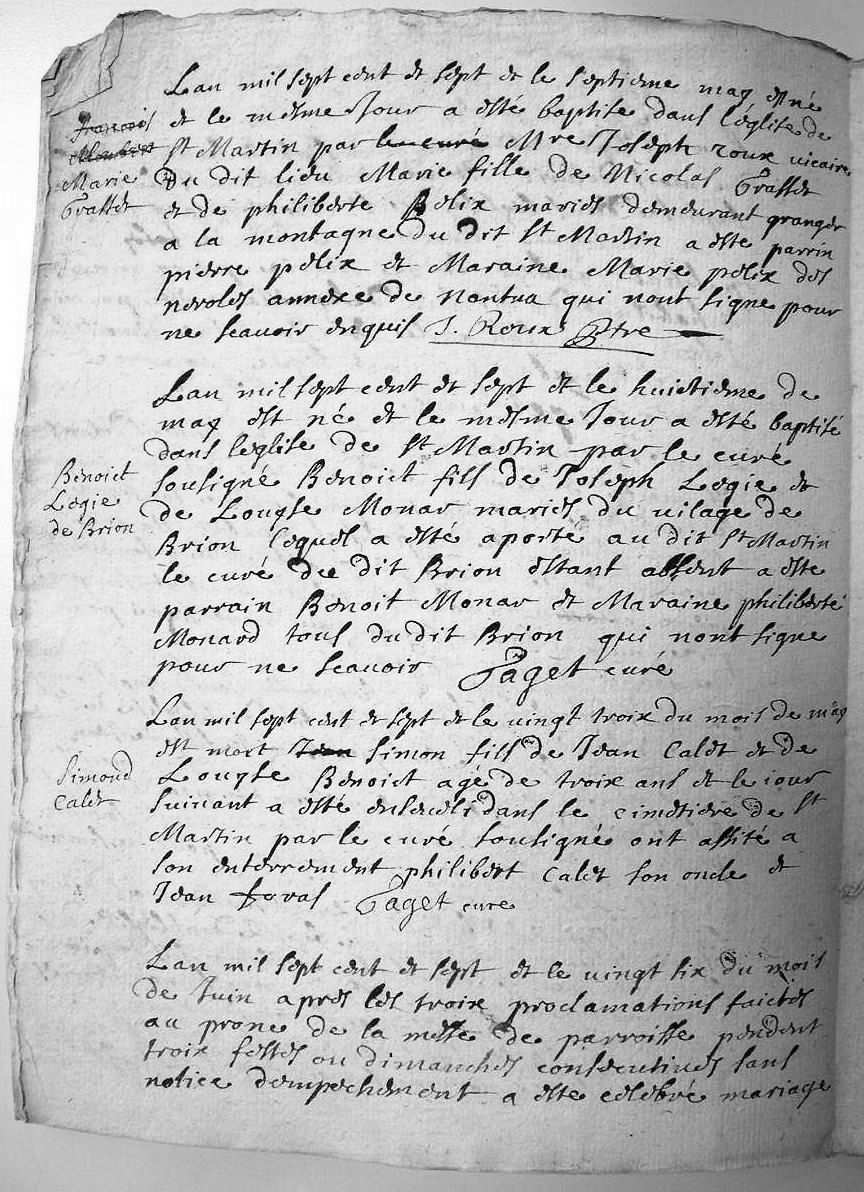 Lan mil sept cent et sept et le septieme may est né
et le mesme Jour a esté baptisé dans l'église de
St Martin par le curé Mre Joseph roux vicaire
Du dit lieu Marie fille de Nicolas Grasset
et de philiberte Pelix mariés demeurant granger
a la montagne du dit St Martin a este parrin
pierre pelix et Maraine Marie pelix des
neroles annexe de nantua qui nont signe pour
ne scauoir enquis J. Roux Ptre
francois
Marie
Grasset
Lan mil sept cent et sept et le huictieme de
may est né et le mesme Jour a esté baptisé
dans leglise de St Martin par le curé
sousigné Benoict fils de Joseph Logie et
de Louyse Monar mariés du vilage de
Brion lequel a esté aporté au dit St Martin
le curé de dit Brion estant absent a este
parrain Benoit Monar et Maraine philiberte
Monard tous du dit Brion qui nont signe
pour ne scauoir Paget curé
Benoict
Logie
de Brion
Lan mil sept cent et sept et le vingt troix du mois de may
est mort Jean Simon fils de Jean Calet et de
Louyse Benoict age de troix ans et le iour
suiuant a esté enseueli dans le cimetiere de St
Martin par le curé soussigné ont assité a
son enterrement philibert Calet son oncle et
Jean Paget cure
Simond
Calet
Lan mil sept cent et sept et le vingt six du mois
de Juin apres les troix proclamations faictes
au prone de la messe de parroisse pendent
troix festes ou dimanches consecutiues sans
notice dempechement a este celebré mariage